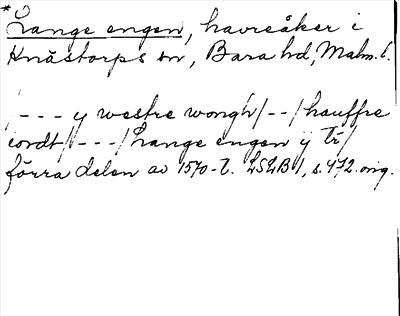 * Lange engen, havreåker i
Knästorps sn, Bara hd, Malm. l.
/--- y westre wongh/--/hauffre
iordt/---/Lange engen ÿ tr/
förra delen av 1570-t. LSLB 1, s. 472. orig.